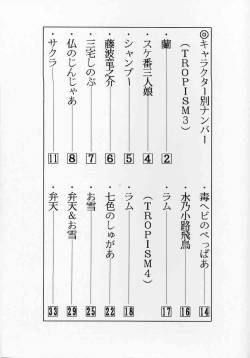 ◎キャラクター別ナンバー
(TROPISM3)
・蘭 2
・スケ番三人娘 4
・シャンプー 5
・藤波竜之介 6
・三宅しのぶ 7
・仏のじんじゃあ 8
・サクラ 11
・毒ヘビのぺっぱあ 14
・水乃小路飛鳥 16
・ラム 17
(TROPISM4)
・ラム 18
・七色のしゅがあ 22
・お雪 25
・弁天&お雪 29
・弁天 33